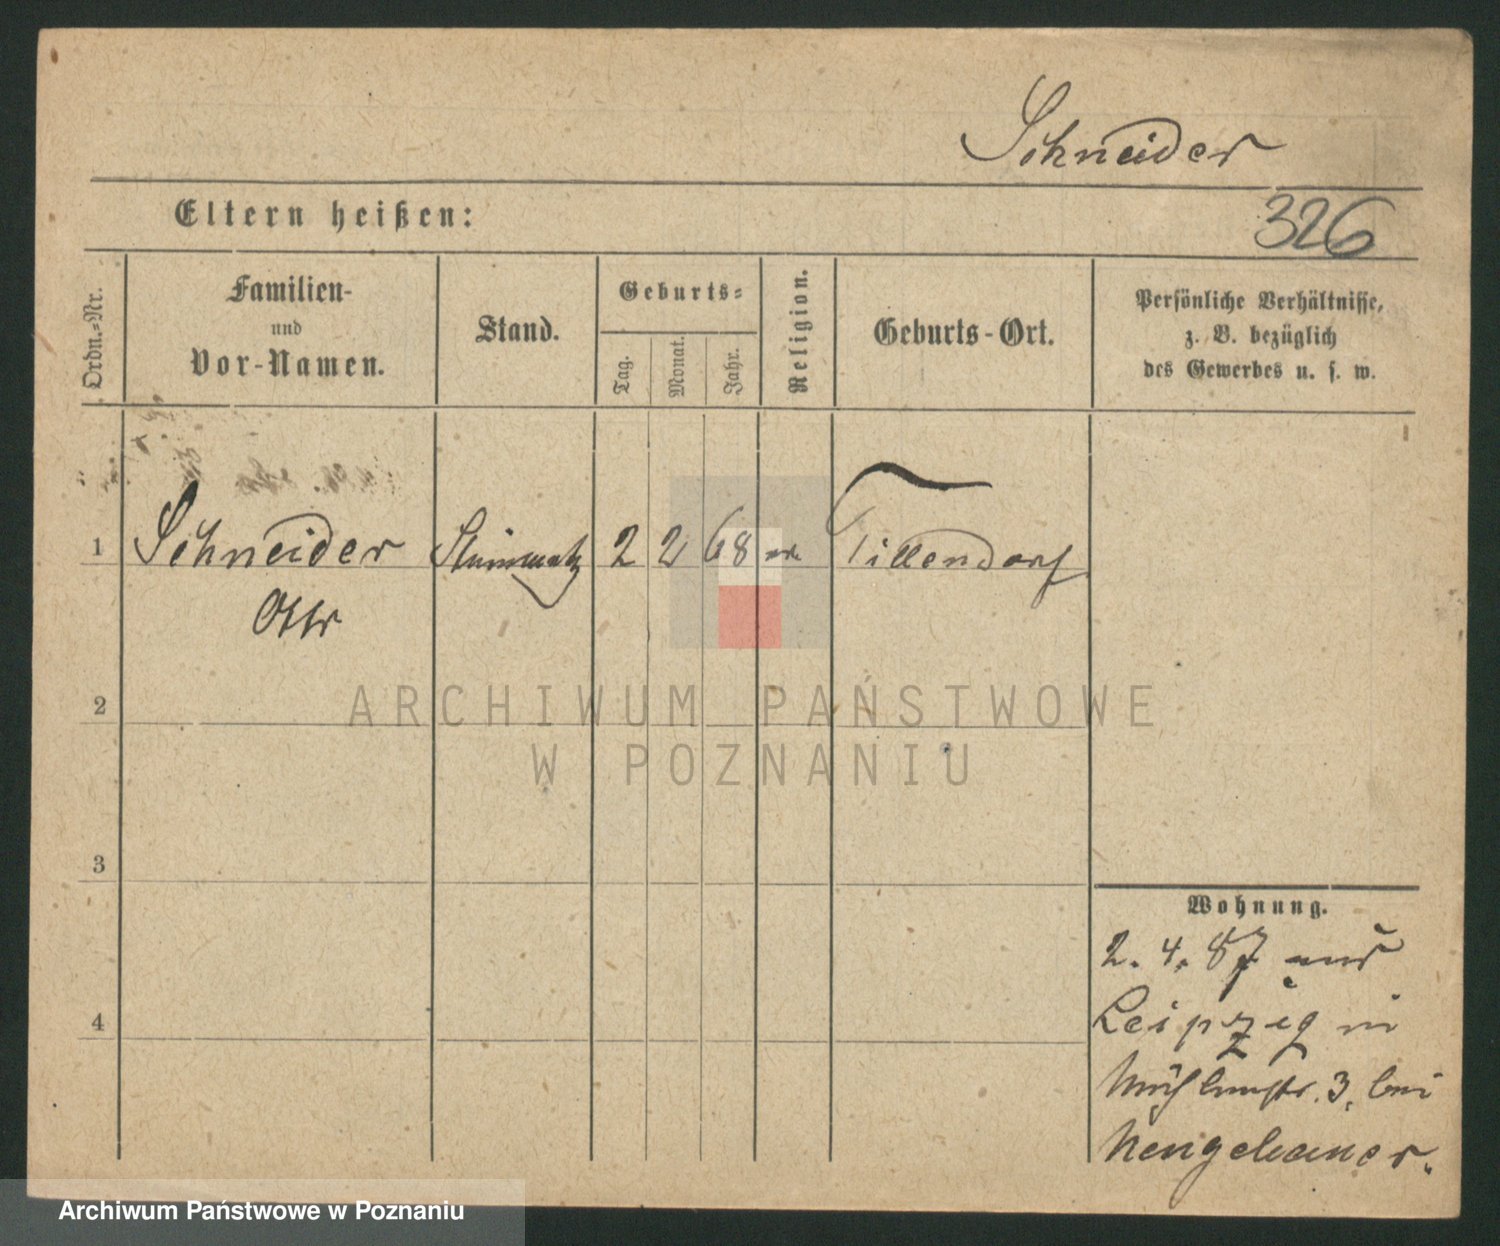 Schneider
Eltern heißen:
326
Ordn.-Nr.
Familien-
und
Vor-Namen.
Stand.
Geburts-
Tag.
Monat.
Jahr.
Religion.
Geburts-Ort.
Persönliche Verhältnisse,
z. B. bezüglich
des Gewerbes u. s. w.
1 Schneider Steinmetz 2 2 68 ev. Tillendorf
Otto
2
3
4
Wohnung.
2. 4. 87 aus
Leipzig in
Mühlenstr. 3, bei
Nengebauer.
ARCHIWUM PAŃSTWOWE
W POZNANIU
Archiwum Państwowe w Poznaniu